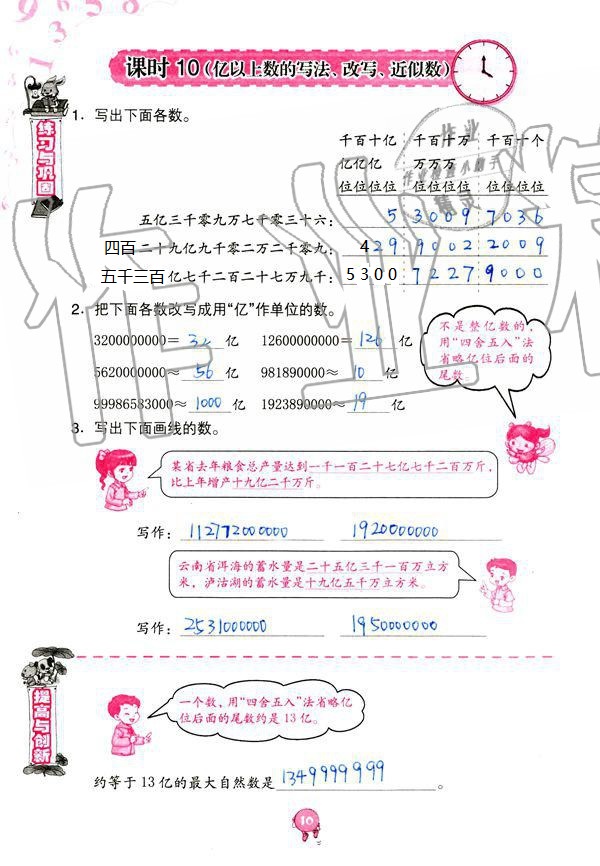 课时 10（亿以上数的写法、改写、近似数）
练习与巩固
1. 写出下面各数。
千百十亿 千百十万 千百十个
亿亿亿 万万万
位位位位 位位位位 位位位位
五亿三千零九万七千零三十六： 5 3009 7036
四百二十九亿九千零二万二千零九： 429 9002 2009
五千三百亿七千二百二十七万九千： 5300 7227 9000
2. 把下面各数改写成用“亿”作单位的数。
3200000000= 32 亿 12600000000= 126 亿
5620000000≈ 56 亿 981890000≈ 10 亿
99986583000≈ 1000 亿 1923890000≈ 19 亿
不是整亿数的，
用“四舍五入”法
省略亿位后面的
尾数。
3. 写出下面画线的数。
某省去年粮食总产量达到一千一百二十七亿七千二百万斤，
比上年增产十九亿二千万斤。
写作： 112772000000 1920000000
云南省洱海的蓄水量是二十五亿三千一百万立方
米，泸沽湖的蓄水量是十九亿五千万立方米。
写作： 2531000000 1950000000
提高与创新
一个数，用“四舍五入”法省略亿
位后面的尾数约是 13 亿。
约等于 13 亿的最大自然数是 1349999999 。
10